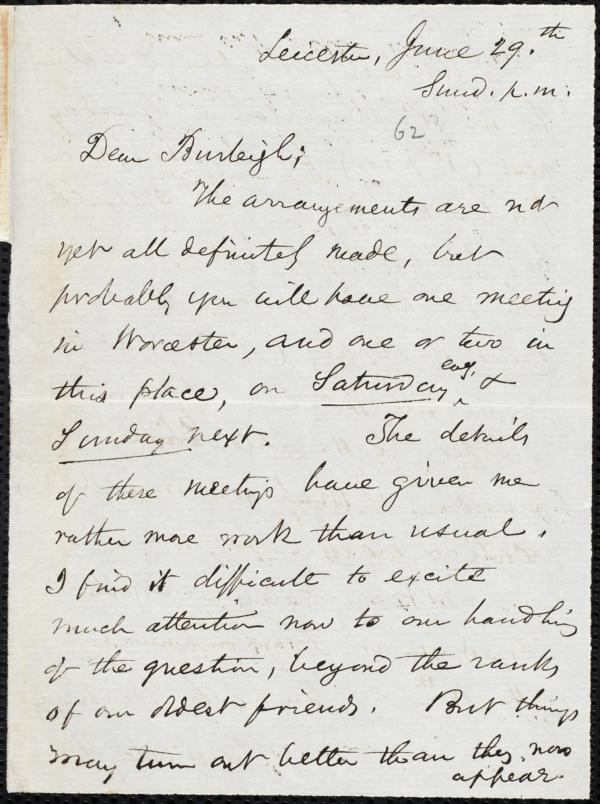 Leicester, June 29.th
Sund. p.m.
62?
Dear Burleigh;
The arrangements are not
yet all definitely made, but
probably you will have one meeting
in Worcester, and one or two in
this place, on Saturday evg. &
Sunday next. The details
of these meetings have given me
rather more work than usual.
I find it difficult to excite
much attention now to our handling
of the question, beyond the ranks
of our oldest friends. But things
may turn out better than they now
appear.